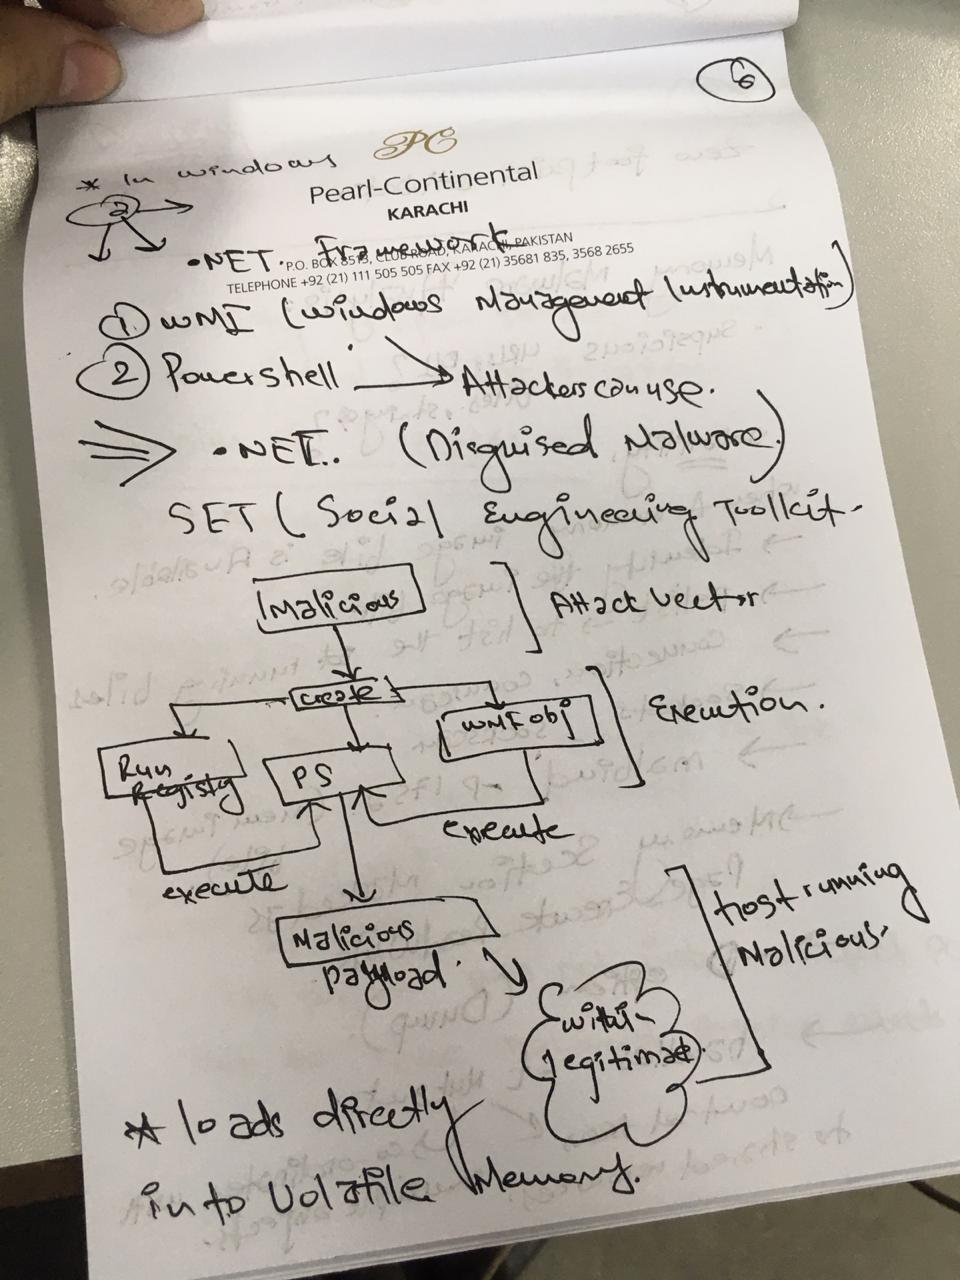 6
PC
* In windows
Pearl-Continental
KARACHI
2
.NET. Framework
P.O. BOX 8513, CLUB ROAD, KARACHI, PAKISTAN
TELEPHONE +92 (21) 111 505 505 FAX +92 (21) 35681 835, 3568 2655
① WMI (Windows Management Instrumentation)
② Powershell → Attackers can use.
.NET.. (Disguised Malware.)
SET (Social Engineering Toolkit.
Malicious
Attack Vector
create
Run Registry
PS
WMI obj
Execution.
execute
execute
Malicious
payload.
host running
Malicious.
legitimate.
* loads directly
into Volatile Memory.